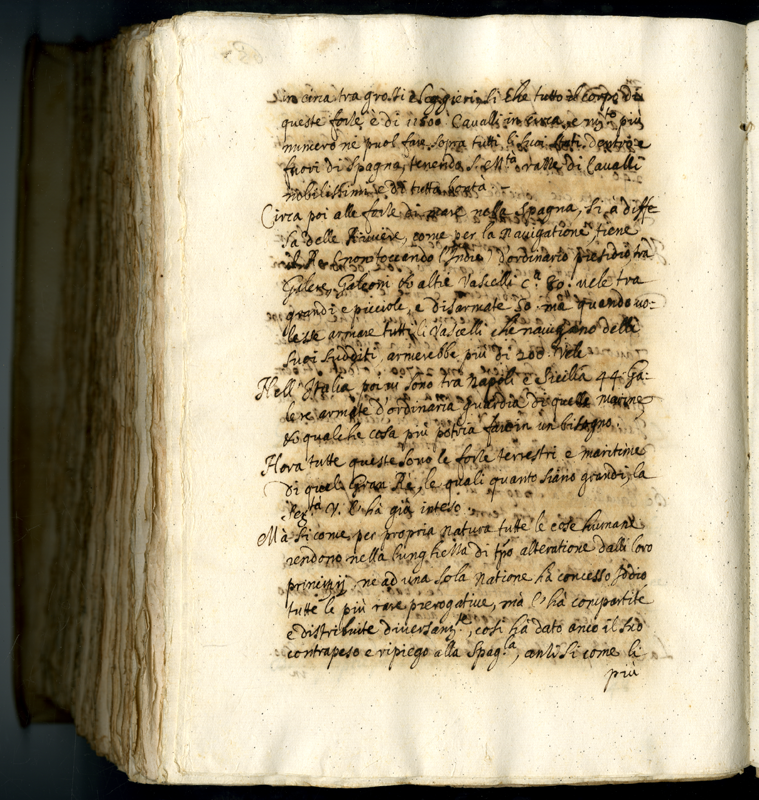 in circa tra grossi e leggieri, si che tutto il corpo di
queste forse è di 11600 Cavalli in circa, e m.to più
numero ne puol far sopra tutti li suoi stati dentro e
fuori di Spagna, tenendo S. M.tà razze di Cavalli
nobilissimi e di tutta bontà.
Circa poi alle forse di mare nella Spagna, si à diffe
sa delle Riviere, come per la navigatione, tiene
il Re (non toccando l'Indie) d'ordinario presidio tra
Galere, Galeoni et altri Vascelli c.a 80 vele tra
grandi e picciole, e disarmate 50 mà quando vo:
lesse armare tutti li Vascelli che navigano delli
suoi sudditi, armerebbe più di 200 Vele
Nell'Italia poi vi sono tra Napoli e Sicilia 44 Ga:
lere armate d'ordinaria guardia di quelle marine
et qualche cosa più potria far in un bisogno.
Hora tutte queste sono le forse terrestri e maritime
di quel Gran Rè, le quali quanto siano grandi, la
Ser.tà V. l'hà già inteso.
Mà si come per propria natura tutte le cose humane
rendono nella lunghezza di tpo alteratione dalli loro
principij, ne ad una sola natione hà concesso Iddio
tutte le più rare prerogative, mà l'hà compartite
e distribuite diversam.te, così hà dato anco il suo
contrapeso e ripiego alla Spag.a, anzi si come li
più